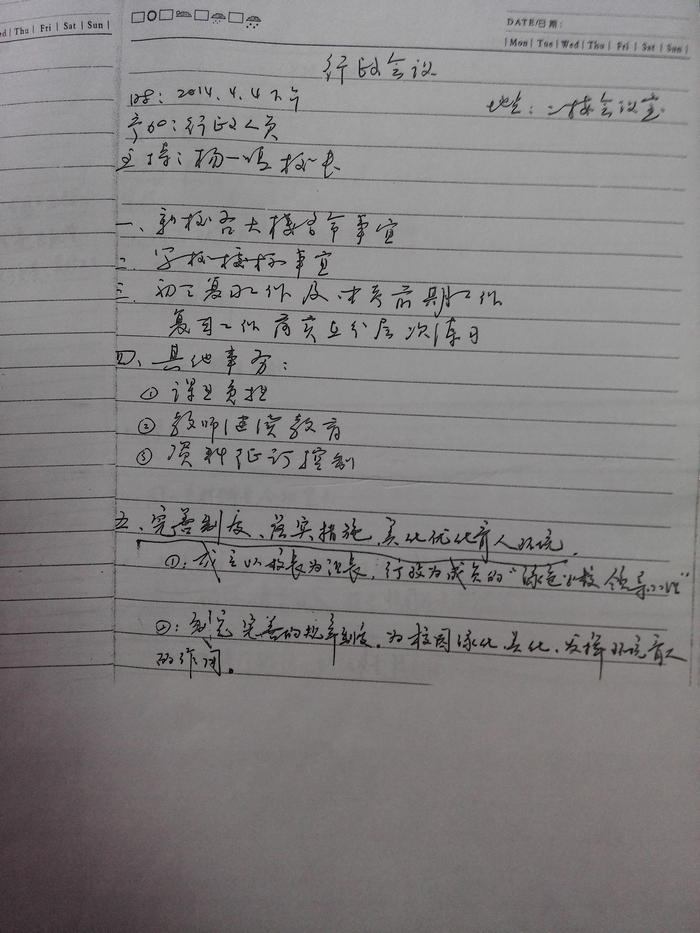 ed | Thu | Fri | Sat | Sun |
DATE/日期:
| Mon | Tue | Wed | Thu | Fri | Sat | Sun |
行政会议
时: 2014.4.4 下午
地点: 二楼会议室
参加: 行政人员
主持: 杨一鸣校长
一、新校各大楼命名事宜
二、学校接标事宜
三、初三复习工作及中考前期工作
复习工作落实立分层次
四、其他事务:
① 课业负担
② 教师继续教育
③ 资料征订控制
五、完善制度、落实措施, 美化优化育人环境.
①: 成立以校长为组长, 行政为成员的“绿色学校领导小组”
②: 制定完善的规章制度, 为校园绿化、美化, 发挥环境育人
的作用。